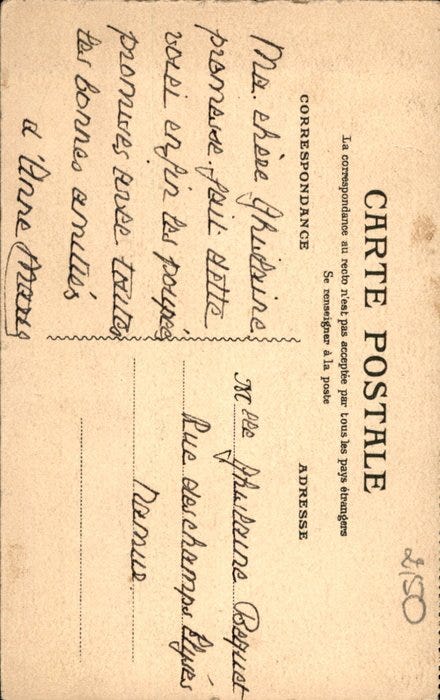 CARTE POSTALE
La correspondance au recto n'est pas acceptée par tous les pays étrangers
Se renseigner à la poste
CORRESPONDANCE
Ma chère Ghislaine
promesse fait dette
voici enfin les poupées
promises avec toutes
les bonnes amitiés
d'Anne Marie
ADRESSE
Melle Ghislaine Bequet
Rue des Champs Elysées
Namur.
2,50